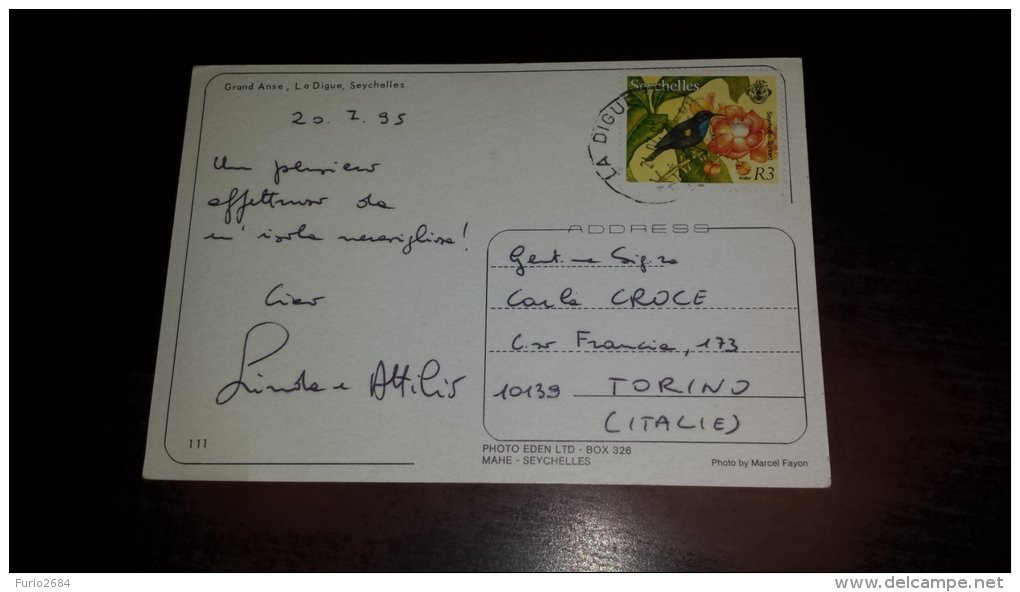 Grand Anse, La Digue, Seychelles
20.7.95
Un pensiero
affettuoso da
un' isola meravigliosa!
Ciao
Linda e Attilio
111
LA DIGUE
Seychelles
R3
ADDRESS
Gent.ma Sig.ra
Carla CROCE
C.so Francia, 173
10139 TORINO
(ITALIE)
PHOTO EDEN LTD - BOX 326
MAHE - SEYCHELLES
Photo by Marcel Fayon
Furio2684
www.delcampe.net